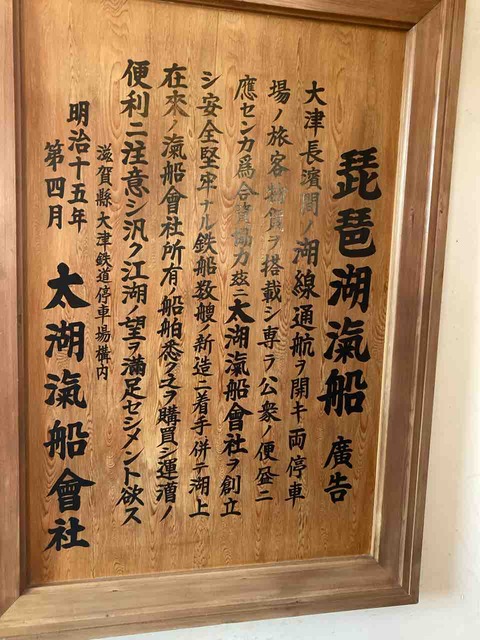 琵琶湖滊船 廣告
大津長濱間ノ湖線通航ヲ開キ両停車
場ノ旅客物貨ヲ搭載シ専ラ公衆ノ便益ニ
應センカ爲合資協力玆ニ太湖滊船會社ヲ創立
シ安全堅牢ナル鉄船数艘ノ新造ニ着手シ併テ湖上
在來ノ滊船會社所有ノ船舶悉ク之ヲ購買シ運漕ノ
便利ニ注意シ汎ク江湖ノ望ヲ滿足セシメント欲ス
滋賀縣大津鉄道停車場構内
明治十五年
第四月
太湖滊船會社